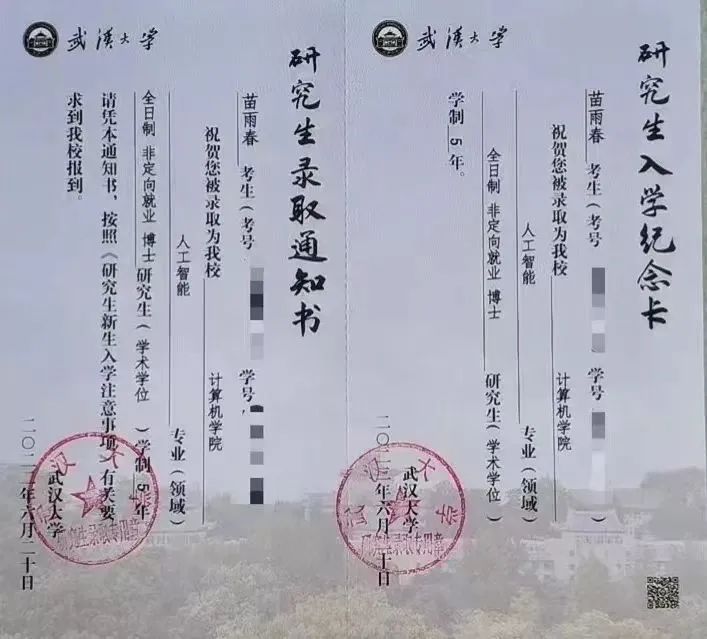 武漢大学
研究生录取通知书
苗雨春 考生（考号 学号
祝贺您被录取为我校 计算机学院
人工智能 专业（领域）
全日制 非定向就业 博士 研究生（学术学位）学制 5 年
请凭本通知书，按照《研究生新生入学注意事项》有关要
求到我校报到。
武汉大学
年六月二十日
武汉大学
研究生录取专用章
武漢大学
研究生入学纪念卡
苗雨春 考生（考号 学号 ）
祝贺您被录取为我校 计算机学院
人工智能 专业（领域）
全日制 非定向就业 博士 研究生（学术学位）
学制 5 年。
武汉大学
二〇二三年六月二十日
武汉大学
研究生录取专用章